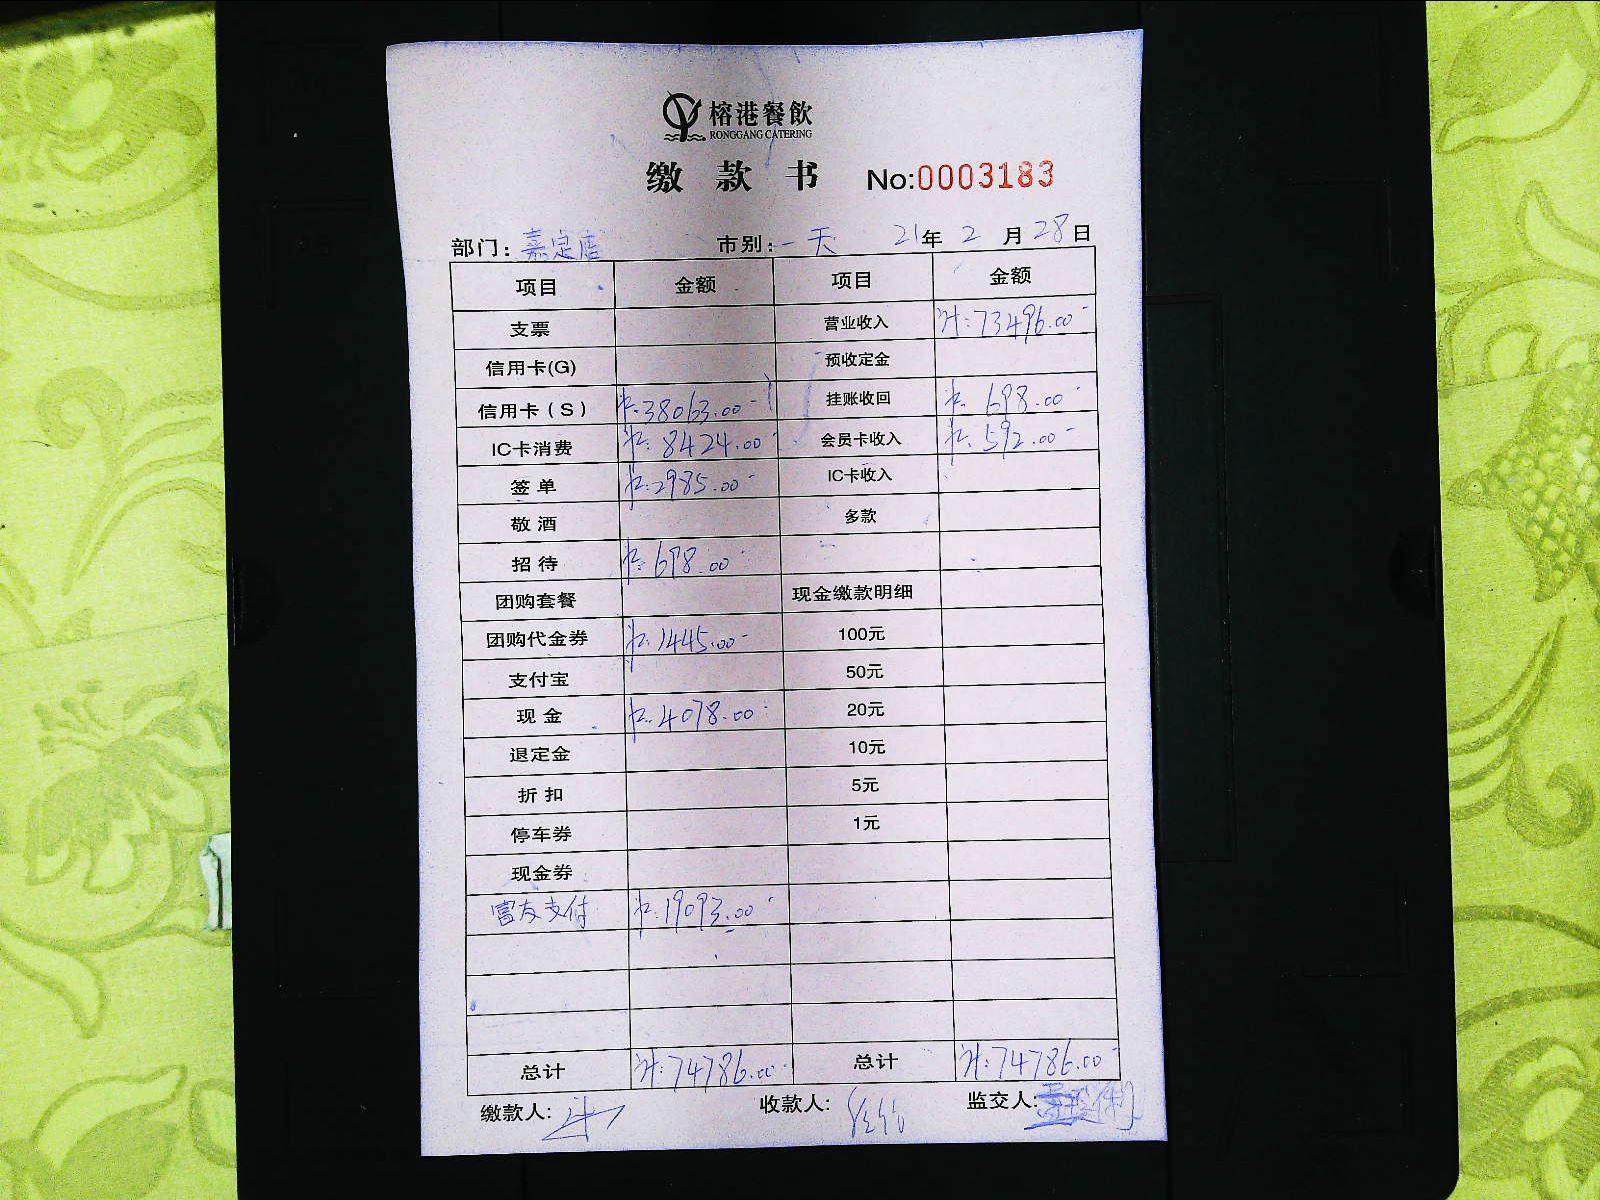 榕港餐飲
RONGGANG CATERING
缴款书 No:0003183
部门: 嘉定店 市别: 一天 21年 2月 28日
项目 金额 项目 金额
支票 营业收入 计:73496.00
信用卡(G) 预收定金
信用卡(S) 38063.00 挂账收回 698.00
IC卡消费 8424.00 会员卡收入 592.00
签单 2985.00 IC卡收入
敬酒 多款
招待 698.00
团购套餐 现金缴款明细
团购代金券 1445.00 100元
支付宝 50元
现金 4078.00 20元
退定金 10元
折扣 5元
停车券 1元
现金券
富友支付 19093.00
总计 计:74786.00 总计 计:74786.00
缴款人: 收款人: 监交人: